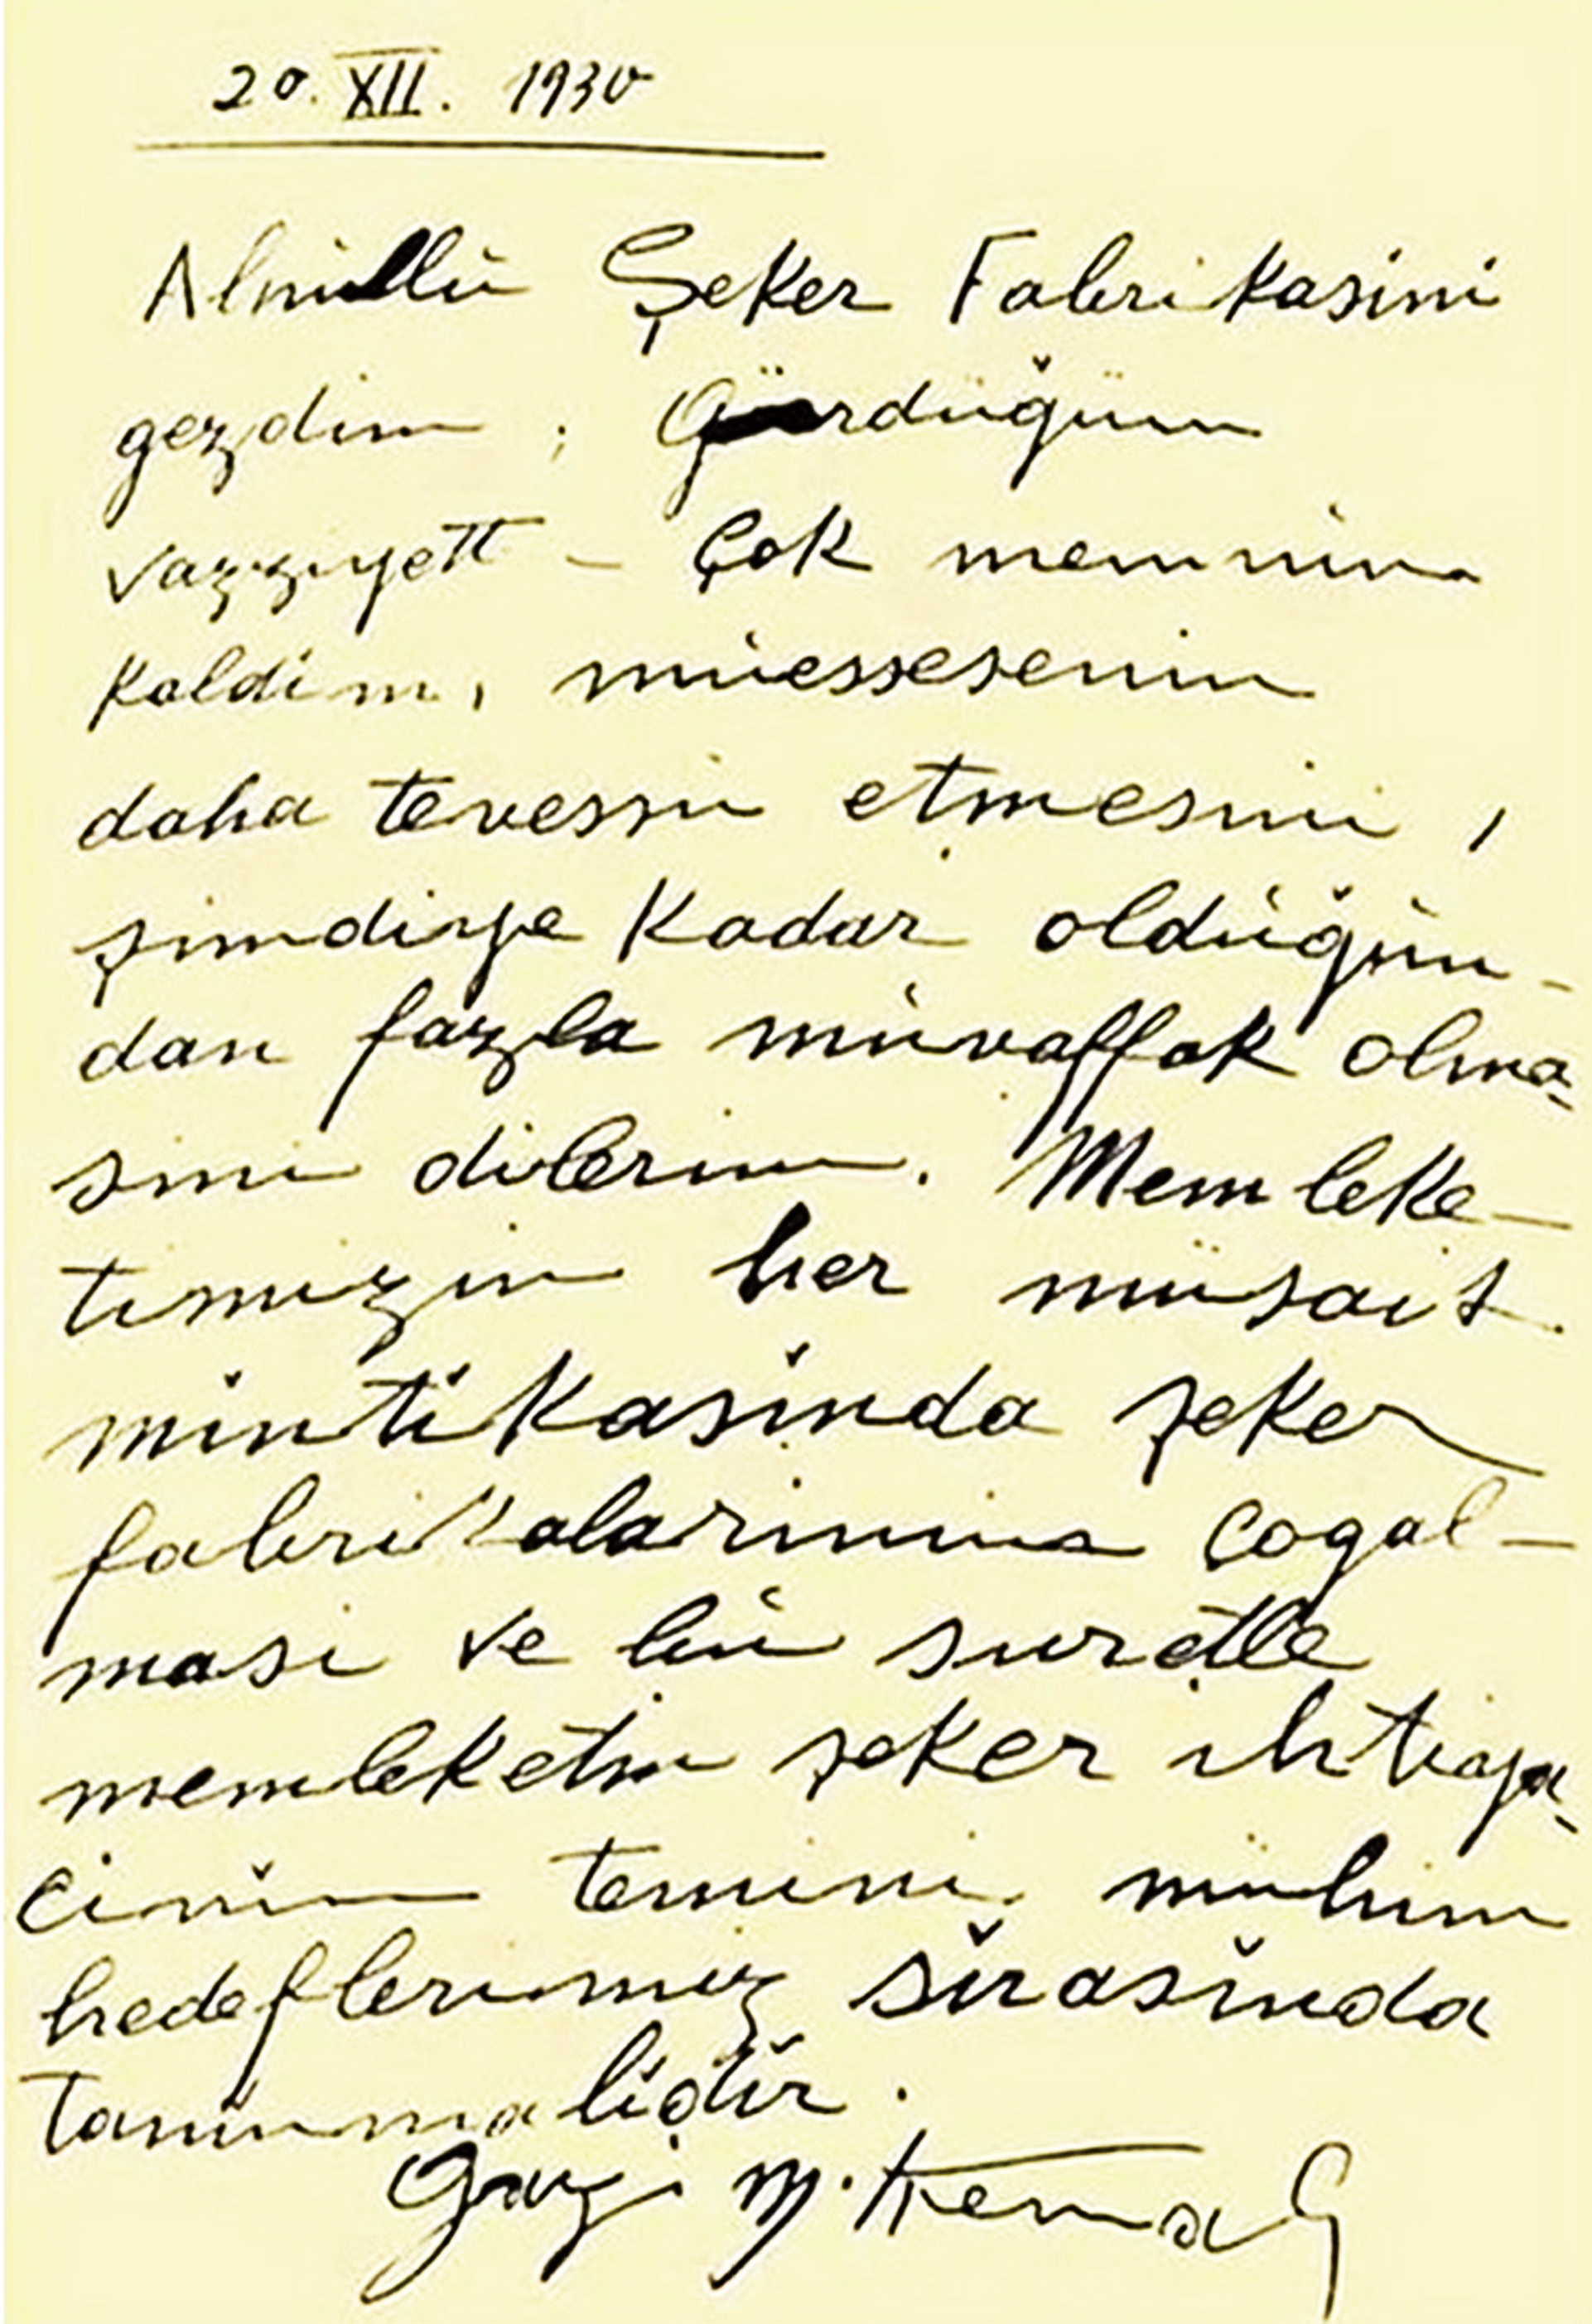 20. XII. 1930
Alpullu Şeker Fabrikasini
gezdim ; Gördüğüm
vazziyett - Çok memnun
kaldim, müessesenin
daha tevessü etmesini,
şimdiye Kadar olduğun-
dan fazla müvaffak olma-
sini dilerim. Memleke-
timizin her müsait
mintikasinda şeker
fabrikalarinin çogal-
masi ve bu suretle
memleketin şeker ihtiya-
cinin temini mühim
hedeflerimiz sirasinda
taninmalidir.
Gazi M. Kemal